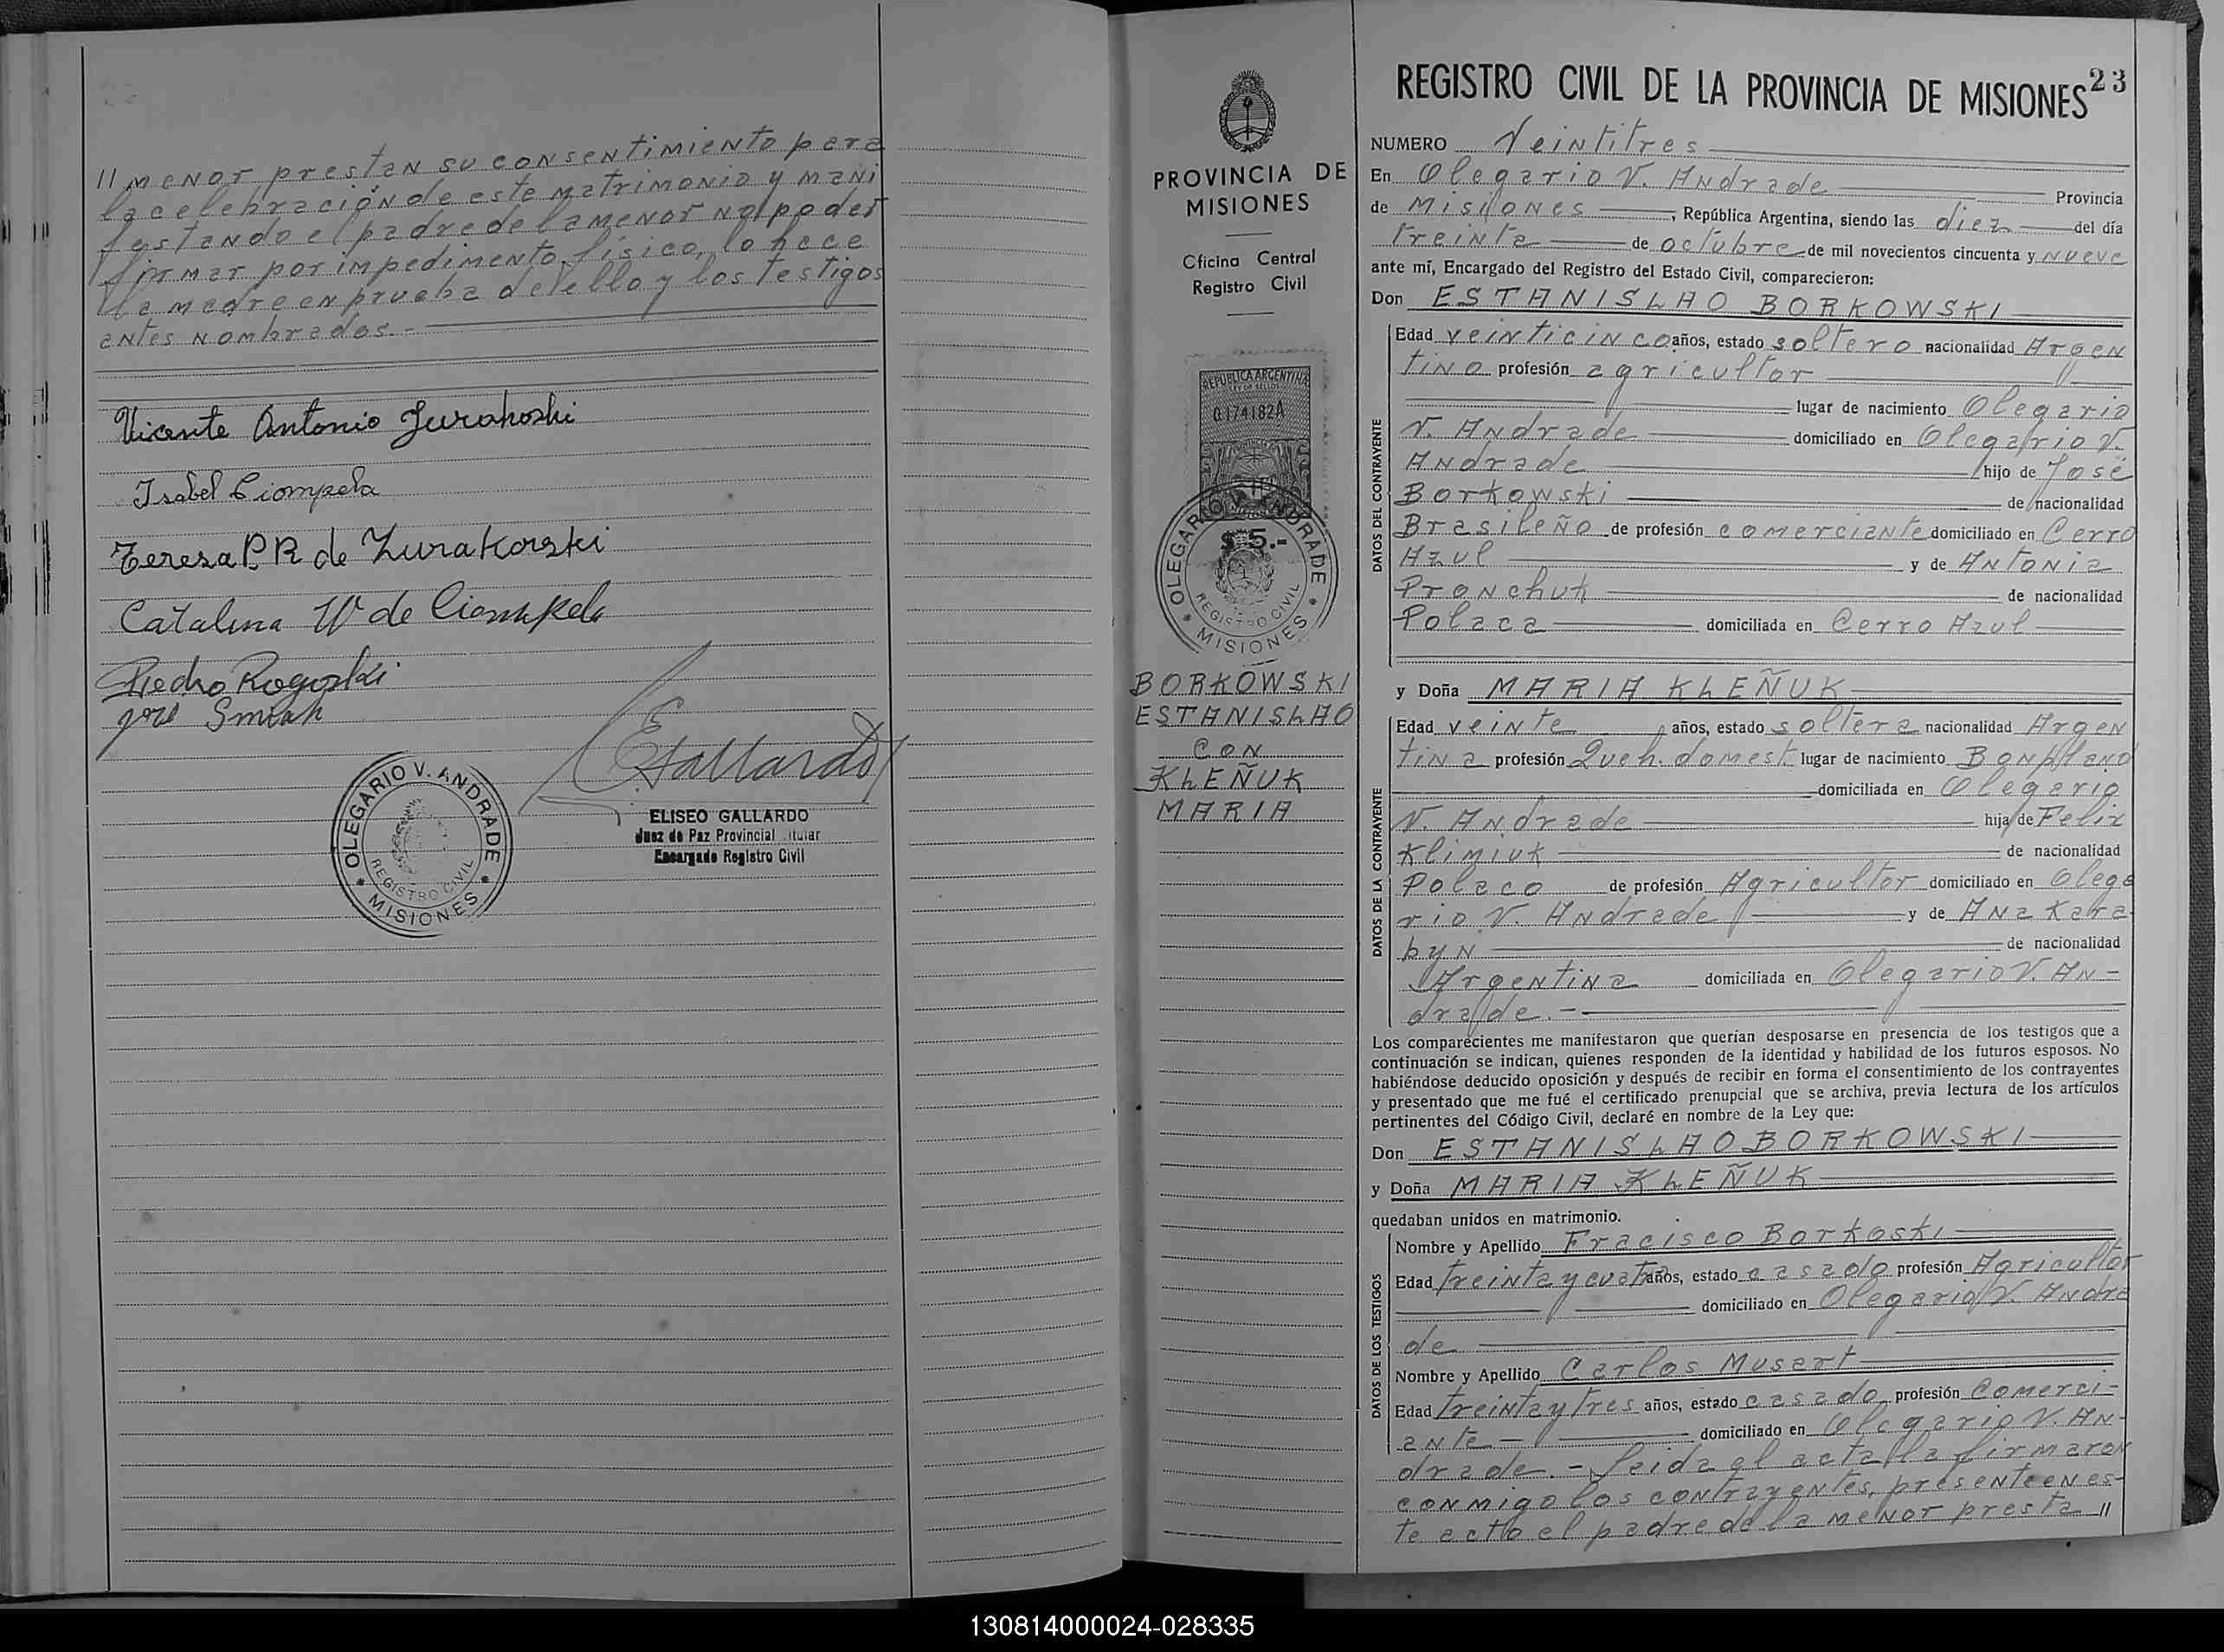 // menor prestan su consentimiento para
la celebración de este matrimonio y mani
festando el padre de la menor no poder
firmar por impedimento físico, lo hace
la madre en prueba de ello y los testigos
antes nombrados.-
Vicente Antonio Zurakoski
Isabel Ciompela
Teresa P. R de Zurakoski
Catalina W de Ciompela
Pedro Rogoski
José Smiak
EGallardo
ELISEO GALLARDO
Juez de Paz Provincial Titular
Encargado Registro Civil
OLEGARIO V. ANDRADE
REGISTRO CIVIL
* MISIONES *
PROVINCIA DE
MISIONES
Oficina Central
Registro Civil
REPUBLICA ARGENTINA
LEY DE SELLOS
0.174182A
$ 5.-
OLEGARIO V. ANDRADE
REGISTRO CIVIL
* MISIONES *
BORKOWSKI
ESTANISLAO
CON
KLEÑUK
MARIA
REGISTRO CIVIL DE LA PROVINCIA DE MISIONES 23
NUMERO Veintitres
En Olegario V. Andrade Provincia
de Misiones, República Argentina, siendo las diez del día
treinta de octubre de mil novecientos cincuenta y nueve
ante mí, Encargado del Registro del Estado Civil, comparecieron:
Don ESTANISLAO BORKOWSKI
DATOS DEL CONTRAYENTE
Edad veinticinco años, estado soltero nacionalidad Argen
tino profesión agricultor
lugar de nacimiento Olegario
V. Andrade domiciliado en Olegario V.
Andrade hijo de José
Borkowski de nacionalidad
Brasileño de profesión comerciante domiciliado en Cerro
Azul y de Antonia
Pronchuk de nacionalidad
Polaca domiciliada en Cerro Azul
y Doña MARIA KLEÑUK
DATOS DE LA CONTRAYENTE
Edad veinte años, estado soltera nacionalidad Argen
tina profesión Queh. domest. lugar de nacimiento Bonpland
domiciliada en Olegario
V. Andrade hija de Felix
Klimiuk de nacionalidad
Polaco de profesión Agricultor domiciliado en Olega
rio V. Andrade y de Ana Kara
byn de nacionalidad
Argentina domiciliada en Olegario V. An-
drade.-
Los comparecientes me manifestaron que querían desposarse en presencia de los testigos que a
continuación se indican, quienes responden de la identidad y habilidad de los futuros esposos. No
habiéndose deducido oposición y después de recibir en forma el consentimiento de los contrayentes
y presentado que me fué el certificado prenupcial que se archiva, previa lectura de los artículos
pertinentes del Código Civil, declaré en nombre de la Ley que:
Don ESTANISLAO BORKOWSKI
y Doña MARIA KLEÑUK
quedaban unidos en matrimonio.
DATOS DE LOS TESTIGOS
Nombre y Apellido Fracisco Borkoski
Edad treinta y cuatro años, estado casado profesión Agricultor
domiciliado en Olegario V. Andra
de
Nombre y Apellido Carlos Musart
Edad treinta y tres años, estado casado profesión Comerci-
ante - domiciliado en Olegario V. An-
drade.- Leida el acta la firmaron
conmigo los contrayentes, presente en es-
te acto el padre de la menor presta //
130814000024-028335